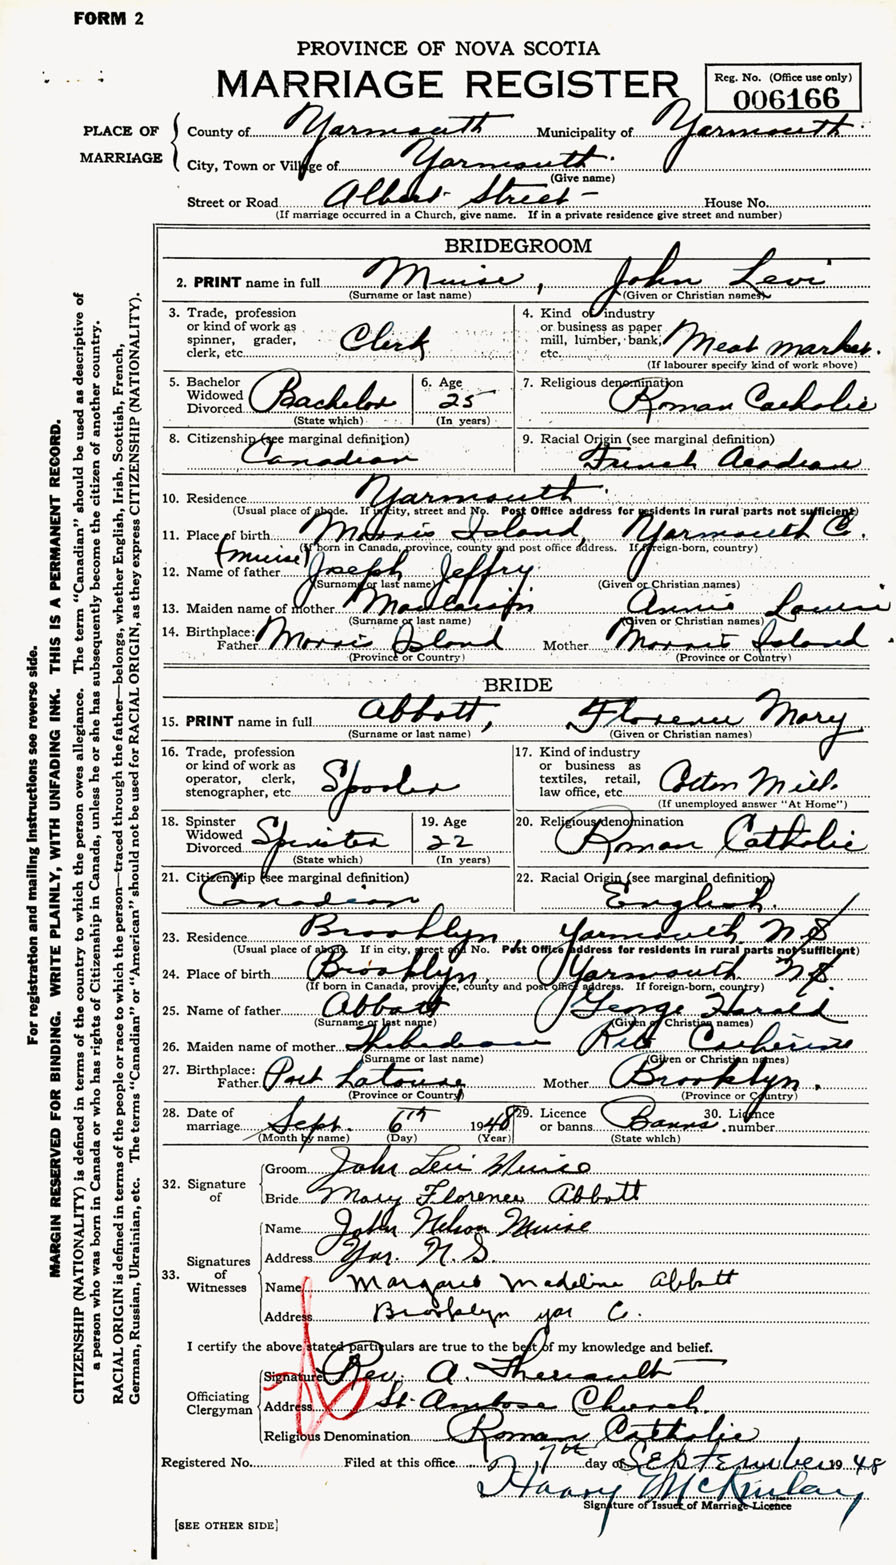 FORM 2
PROVINCE OF NOVA SCOTIA
MARRIAGE REGISTER
Reg. No. (Office use only)
006166
PLACE OF MARRIAGE
County of Yarmouth Municipality of Yarmouth
City, Town or Village of Yarmouth
(Give name)
Street or Road Albert Street House No.
(If marriage occurred in a Church, give name. If in a private residence give street and number)
BRIDEGROOM
2. PRINT name in full Muise, John Levi
(Surname or last name) (Given or Christian names)
3. Trade, profession or kind of work as spinner, grader, clerk, etc. Clerk
4. Kind of industry or business as paper mill, lumber, bank, etc. Meat market.
(If labourer specify kind of work above)
5. Bachelor Widowed Divorced Bachelor
(State which)
6. Age 25
(In years)
7. Religious denomination Roman Catholic
8. Citizenship (see marginal definition) Canadian
9. Racial Origin (see marginal definition) French Acadian
10. Residence Yarmouth
(Usual place of abode. If in city, street and No. Post Office address for residents in rural parts not sufficient)
11. Place of birth Morris Island, Yarmouth C.
(If born in Canada, province, county and post office address. If foreign-born, country)
12. Name of father (Muise) Joseph Jeffry
(Surname or last name) (Given or Christian names)
13. Maiden name of mother Annie Louise
(Surname or last name) (Given or Christian names)
14. Birthplace: Father Morris Island Mother Morris Island
(Province or Country) (Province or Country)
BRIDE
15. PRINT name in full Abbott, Florence Mary
(Surname or last name) (Given or Christian names)
16. Trade, profession or kind of work as operator, clerk, stenographer, etc. Spooler
17. Kind of industry or business as textiles, retail, law office, etc. Cotton Mill.
(If unemployed answer "At Home")
18. Spinster Widowed Divorced Spinster
(State which)
19. Age 22
(In years)
20. Religious denomination Roman Catholic
21. Citizenship (see marginal definition) Canadian
22. Racial Origin (see marginal definition) English.
23. Residence Brooklyn Yarmouth N.S
(Usual place of abode. If in city, street and No. Post Office address for residents in rural parts not sufficient)
24. Place of birth Brooklyn, Yarmouth N.S.
(If born in Canada, province, county and post office address. If foreign-born, country)
25. Name of father Abbott George Harold
(Surname or last name) (Given or Christian names)
26. Maiden name of mother Catherine
(Surname or last name) (Given or Christian names)
27. Birthplace: Father Port Latour Mother Brooklyn.
(Province or Country) (Province or Country)
28. Date of marriage Sept. 6th 1948
(Month by name) (Day) (Year)
29. Licence or banns Banns
(State which)
30. Licence number
32. Signature of
Groom John Levi Muise
Bride Mary Florence Abbott
33. Signatures of Witnesses
Name John Nelson Muise
Address Yar. N.S.
Name Margaret Madeline Abbott
Address Brooklyn Yar C.
I certify the above stated particulars are true to the best of my knowledge and belief.
Officiating Clergyman
Signature Rev. A. Theriault
Address St. Ambose Church
Religious Denomination Roman Catholic
Registered No. Filed at this office 7th day of September 1948
Harry McKinlay
Signature of Issuer of Marriage Licence
[SEE OTHER SIDE]
For registration and mailing instructions see reverse side.
MARGIN RESERVED FOR BINDING. WRITE PLAINLY, WITH UNFADING INK. THIS IS A PERMANENT RECORD.
CITIZENSHIP (NATIONALITY) is defined in terms of the country to which the person owes allegiance. The term "Canadian" should be used as descriptive of
a person who was born in Canada or who has rights of Citizenship in Canada, unless he or she has subsequently become the citizen of another country.
RACIAL ORIGIN is defined in terms of the people or race to which the person—traced through the father—belongs, whether English, Irish, Scottish, French,
German, Russian, Ukrainian, etc. The terms "Canadian" or "American" should not be used for RACIAL ORIGIN, as they express CITIZENSHIP (NATIONALITY).